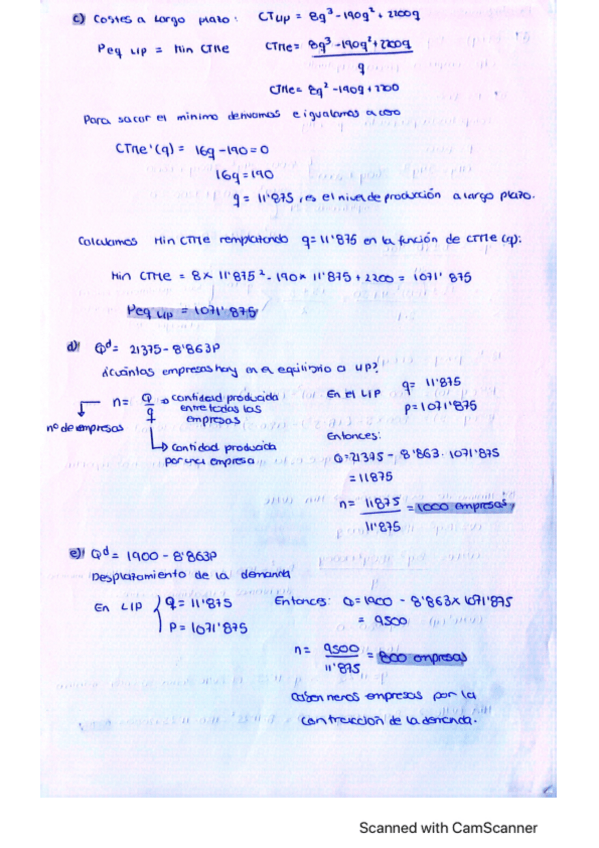 c) Costes a largo plazo: CTLP = 8q³-190q²+2200q
Peq LP = Min CTMe CTMe = 8q³-190q²+2200q
q
CTMe = 8q²-190q+2200
Para sacar el minimo derivamos e igualamos a cero
CTMe'(q) = 16q-190=0
16q=190
q = 11'875, es el nivel de producción a largo plazo.
Calculamos Min CTMe remplatando q=11'875 en la función de CTMe (q):
Min CTMe = 8x 11'875² - 190x 11'875 + 2200 = 1071'875
Peq LP = 1071'875
d) Qd = 21375-8'863P
¿Cuántas empresas hay en el equilibrio a LP?
n = Q → Cantidad producida entre todas las empresas
q
nº de empresas
Cantidad producida por una empresa
En el LP q= 11'875
P=1071'875
Entonces:
Q=21375 - 8'863 · 1071'875
= 11875
n = 11875 = 1000 empresas
11'875
e) Qd = 1900 - 8'863P
Desplazamiento de la demanda
En LP q = 11'875
P = 1071'875
Entonces: Q=1900 - 8'863x1071'875
= 9500
n = 9500 = 800 empresas
11'875
Caben menos empresas por la
contracción de la demanda.
Scanned with CamScanner